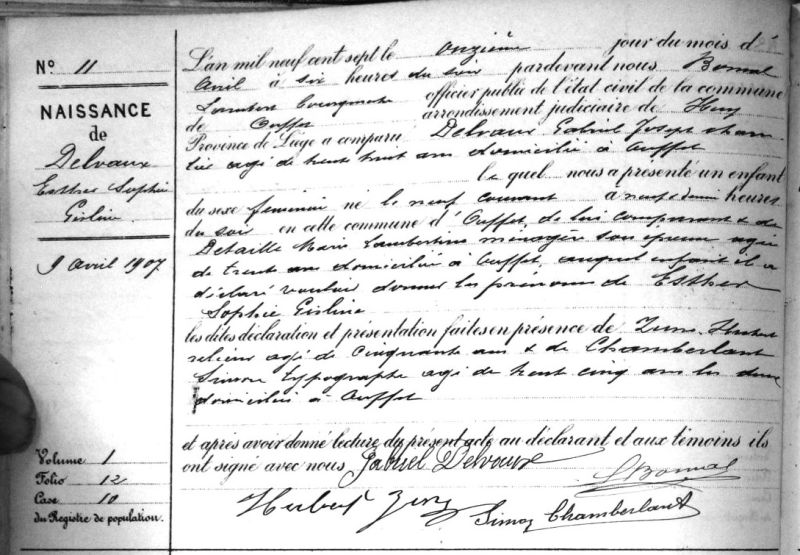 N° 11
NAISSANCE
de
Delvaux
Esther Sophie
Gisline
9 avril 1907
Volume 1
Folio 12
Case 10
du Registre de population.
L'an mil neuf cent sept le onzième jour du mois d'
Avril à six heures du soir pardevant nous Bomal
Lambert officier public de l'état civil de la commune
de Ouffet arrondissement judiciaire de Huy
Province de Liège a comparu Delvaux Gabriel Joseph
agé de trente huit ans domicilié à Ouffet
le quel nous a présenté un enfant
du sexe féminin né le neuf courant à neuf & demi heures
du soir en cette commune d'Ouffet, de lui comparant & de
Detaille Marie Lambertine ménagère son épouse agée
de trente ans domiciliée à Ouffet, auquel enfant il a
déclaré vouloir donner les prénoms de Esther
Sophie Gisline
les dites déclaration et présentation faites en présence de Hubert
relieur agé de cinquante ans & de Chamberlant
Simon typographe agé de trente cinq ans les deux
domiciliés à Ouffet
et après avoir donné lecture du présent acte au déclarant et aux témoins ils
ont signé avec nous Gabriel Delvaux
LBomal
Hubert
Simon Chamberlant